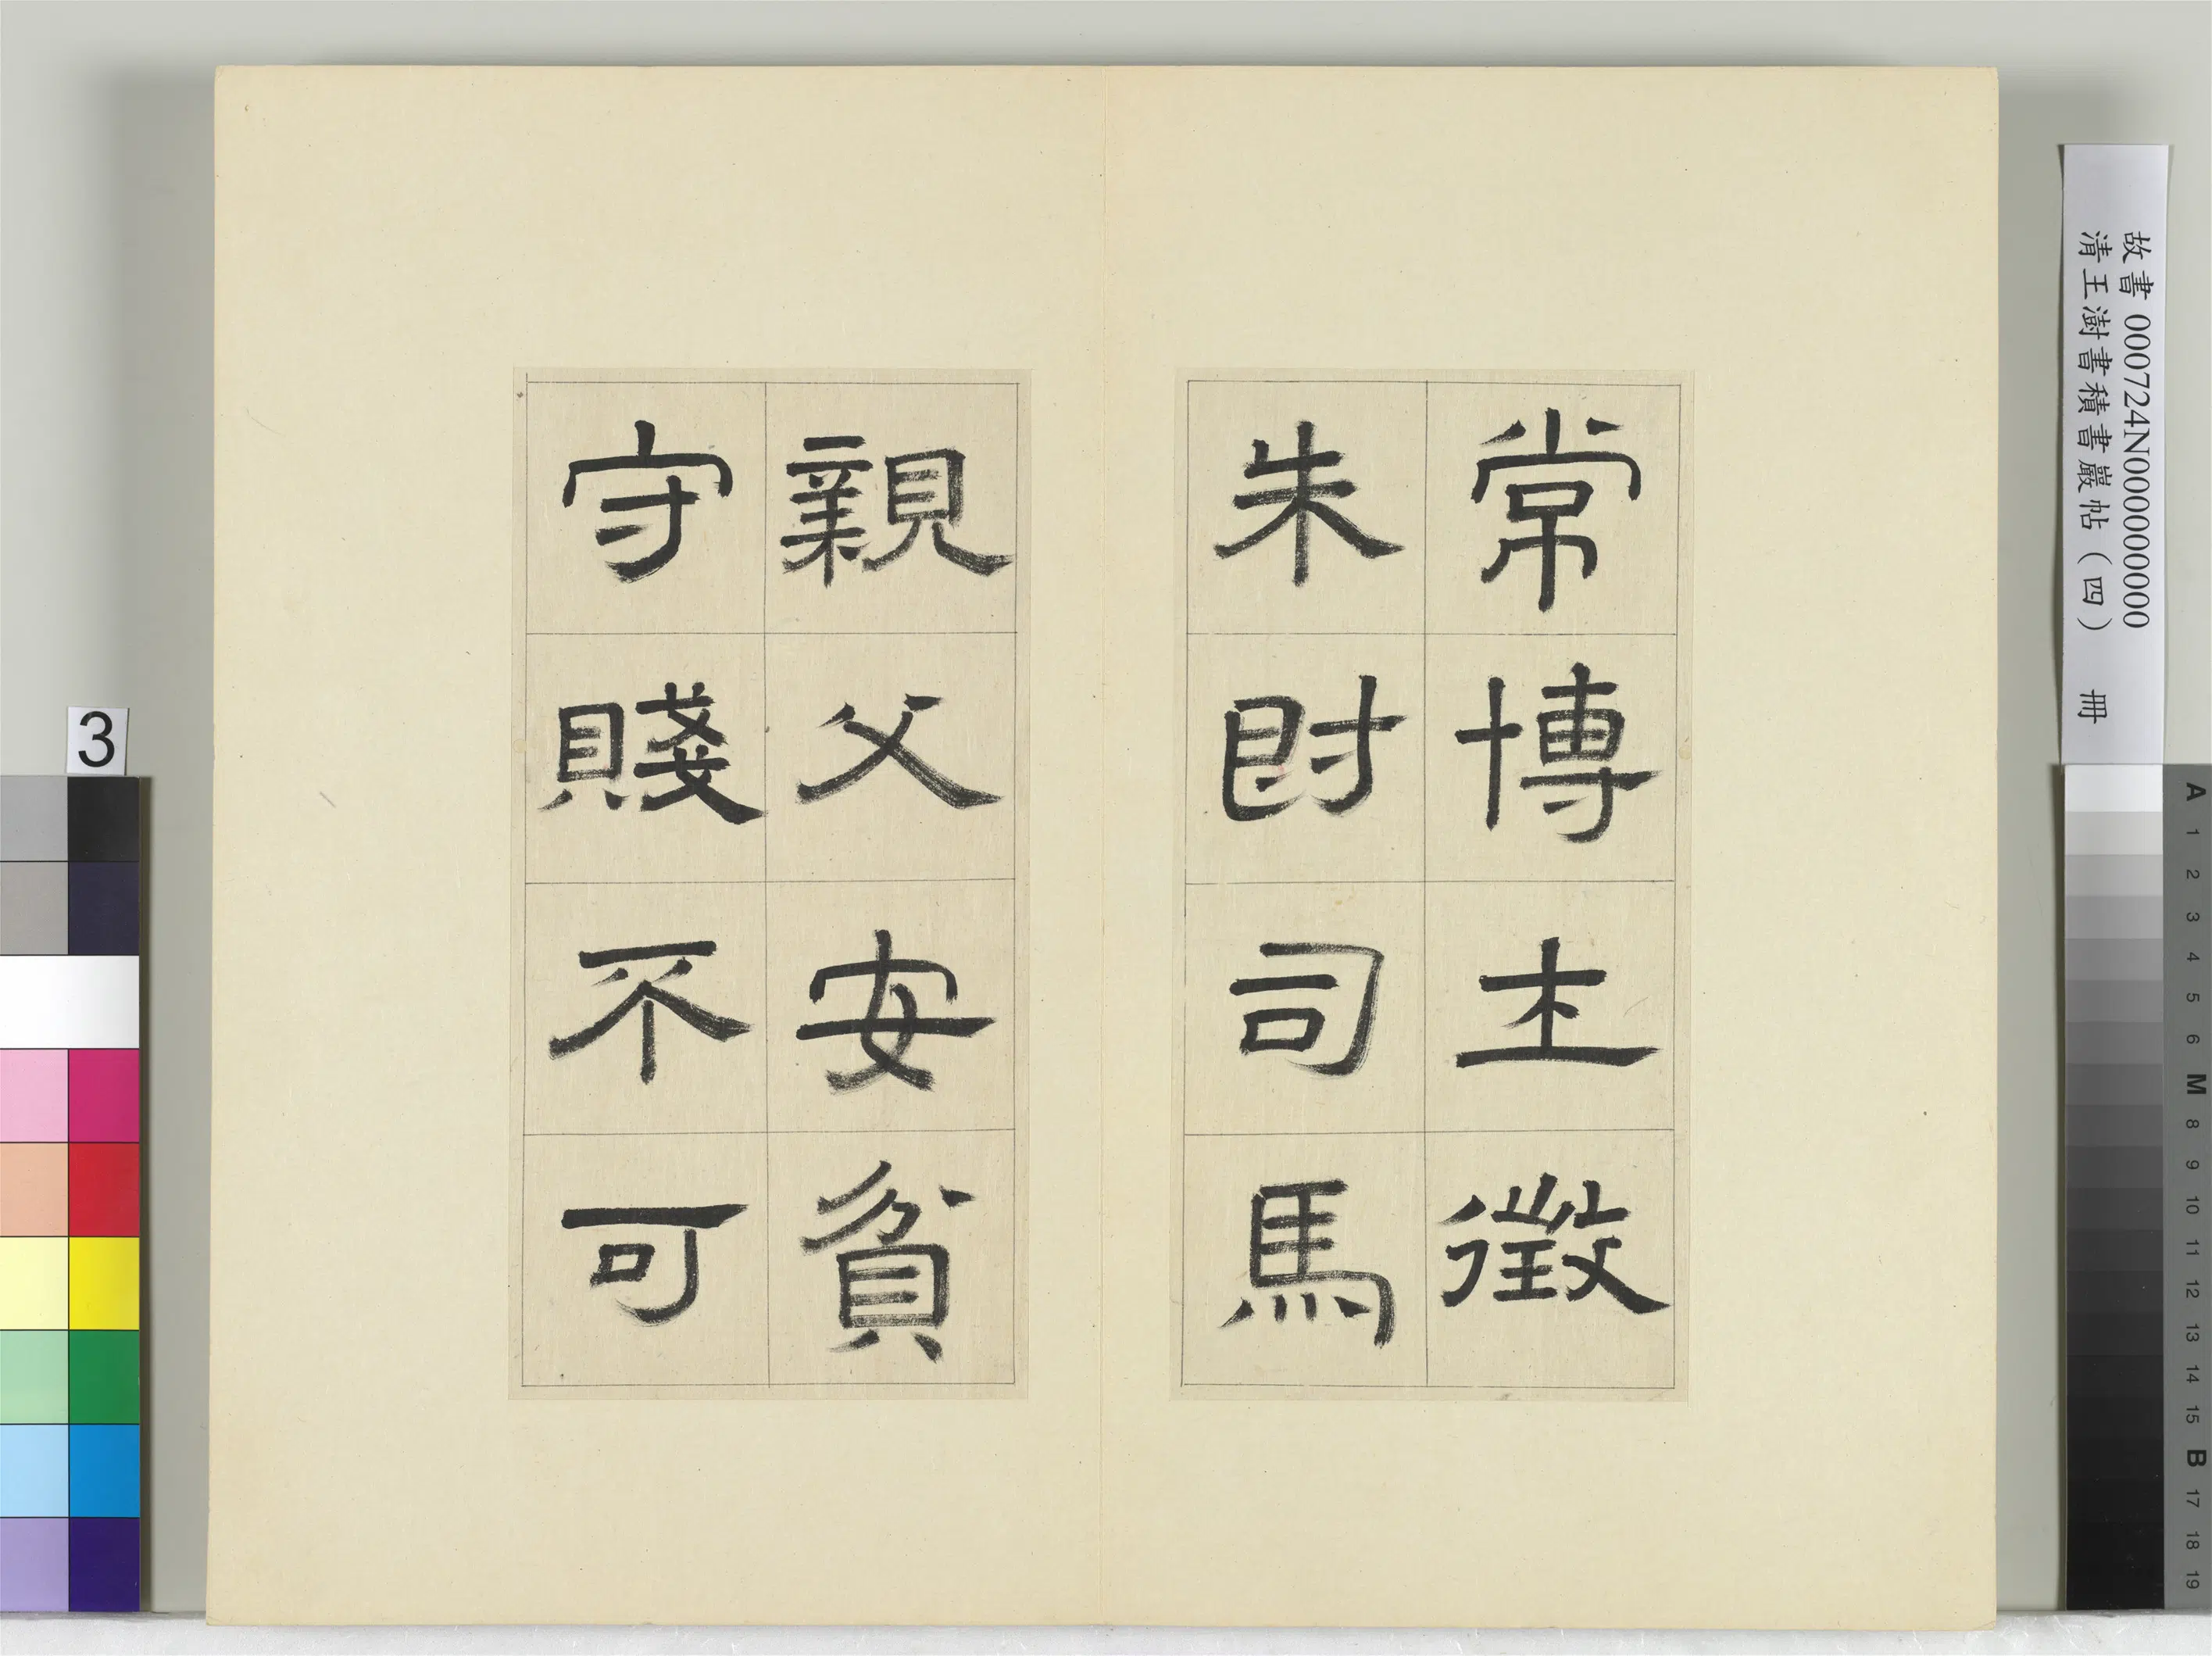 常博士徵
朱爵司馬
親父安貧
守賤不可
故書 000724N000000000
清王澍書積書巖帖（四） 冊
3
A 1 2 3 4 5 6 M 8 9 10 11 12 13 14 15 B 17 18 19